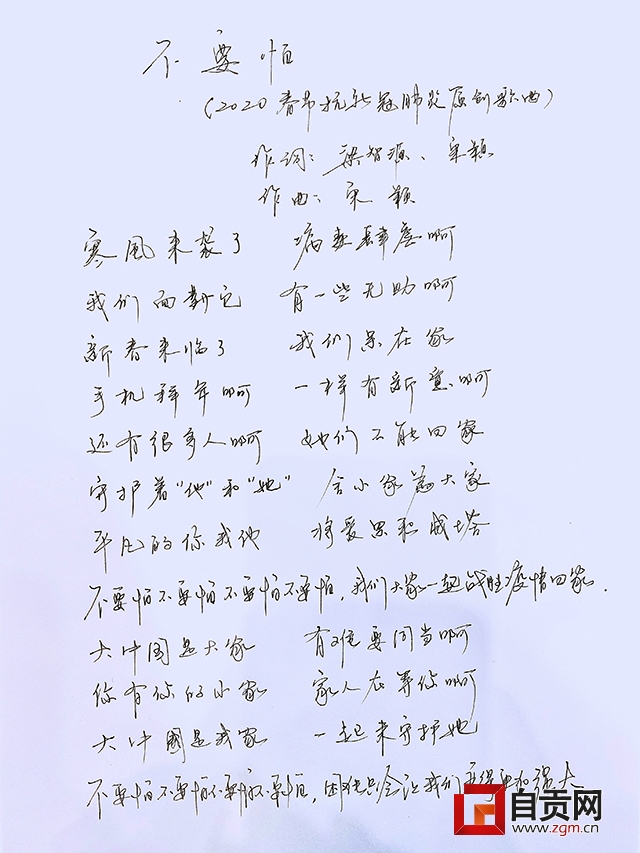 不要怕
(2020春节抗新冠肺炎原创歌曲)
作词:梁智源、宋颖
作曲:宋颖
寒风来袭了 病毒肆虐啊
我们面对它 有一些无助啊
新春来临了 我们呆在家
手机拜年啊 一样有新意啊
还有很多人啊 她们不能回家
守护着"他"和"她" 舍小家为大家
平凡的你我他 将爱累积成塔
不要怕不要怕不要怕不要怕,我们大家一起战胜疫情回家.
大中国是大家 有难要同当啊
你有你的小家 家人在等你啊
大中國是我家 一起来守护她
不要怕不要怕不要怕不要怕,困难只会让我们变得更加强大
自贡网
www.zgm.cn